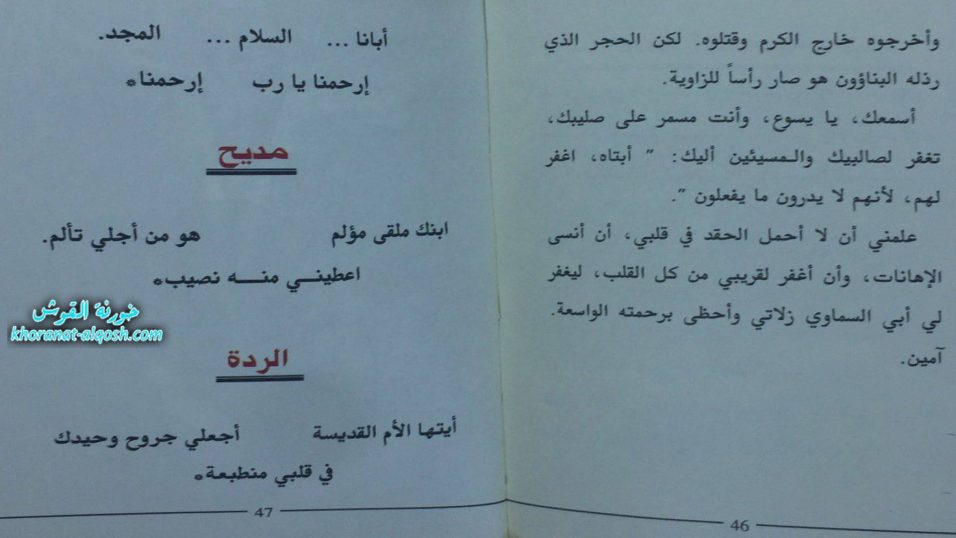 وأخرجوه خارج الكرم وقتلوه. لكن الحجر الذي
رذله البناؤون هو صار رأساً للزاوية.
أسمعك، يا يسوع، وأنت مسمر على صليبك،
تغفر لصالبيك والـمسيئين أليك: " أبتاه، اغفر
لهم، لأنهم لا يدرون ما يفعلون ".
علمني أن لا أحمل الحقد في قلبي، أن أنسى
الإهانات، وأن أغفر لقريبي من كل القلب، ليغفر
لي أبي السماوي زلاتي وأحظى برحمته الواسعة.
آمين.
46
أبانا ... السلام ... المجد.
إرحمنا يا رب إرحمنا*
مديح
ابنك ملقى مؤلم هو من أجلي تألم.
اعطينـــي منـــه نصيب*
الردة
أيتها الأم القديسة أجعلي جروح وحيدك
في قلبي منطبعة*
47
خورنة القوش
khoranat-alqosh.com